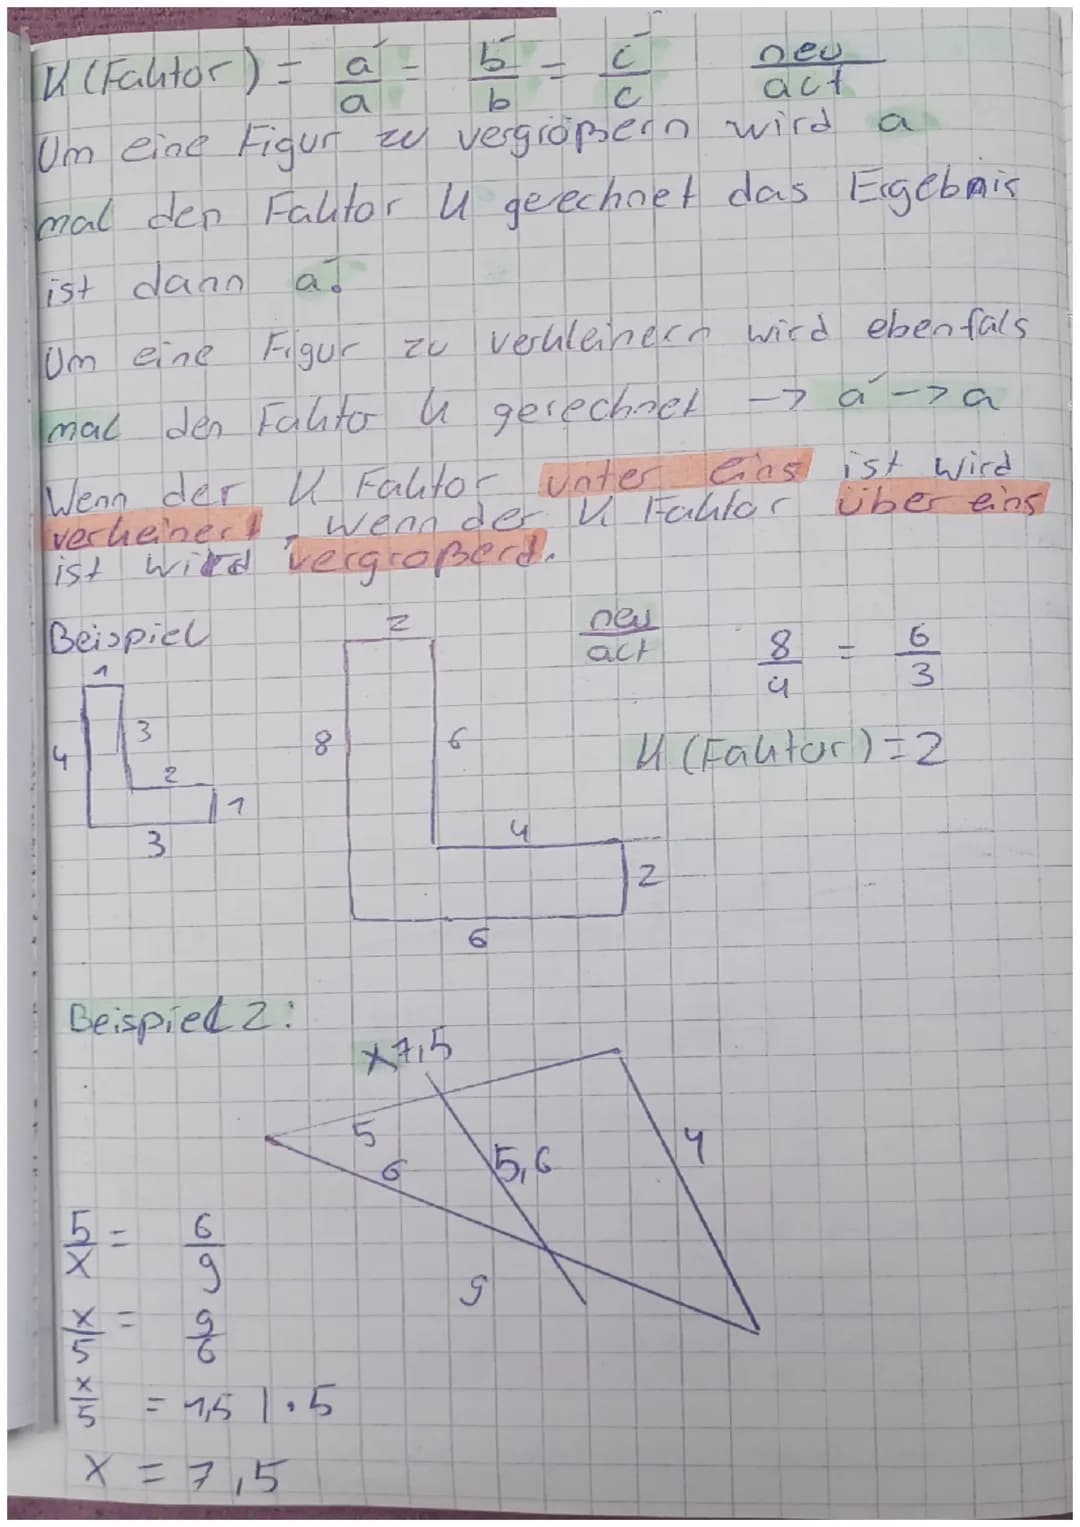 K (Faktor) = á/a = b́/b = ć/c neu/act
Um eine Figur zu vergrößern wird a
mal den Faktor K gerechnet das Ergebnis
ist dann á.
Um eine Figur zu verkleinern wird ebenfals
mal den Fakto K gerechnet -> á -> a
Wenn der K Faktor unter eins ist wird
verkeinert, wenn der K Faktor über eins
ist wird vergroßerd.
Beispiel
neu/act 8/4 = 6/3
K (Faktor) = 2
1
4
3
2
1
3
2
8
6
4
2
6
Beispiel 2:
x7,5
5
6
5,6
4
9
5/x = 6/9
x/5 = 9/6
x/5 = 1,5 | · 5
x = 7,5